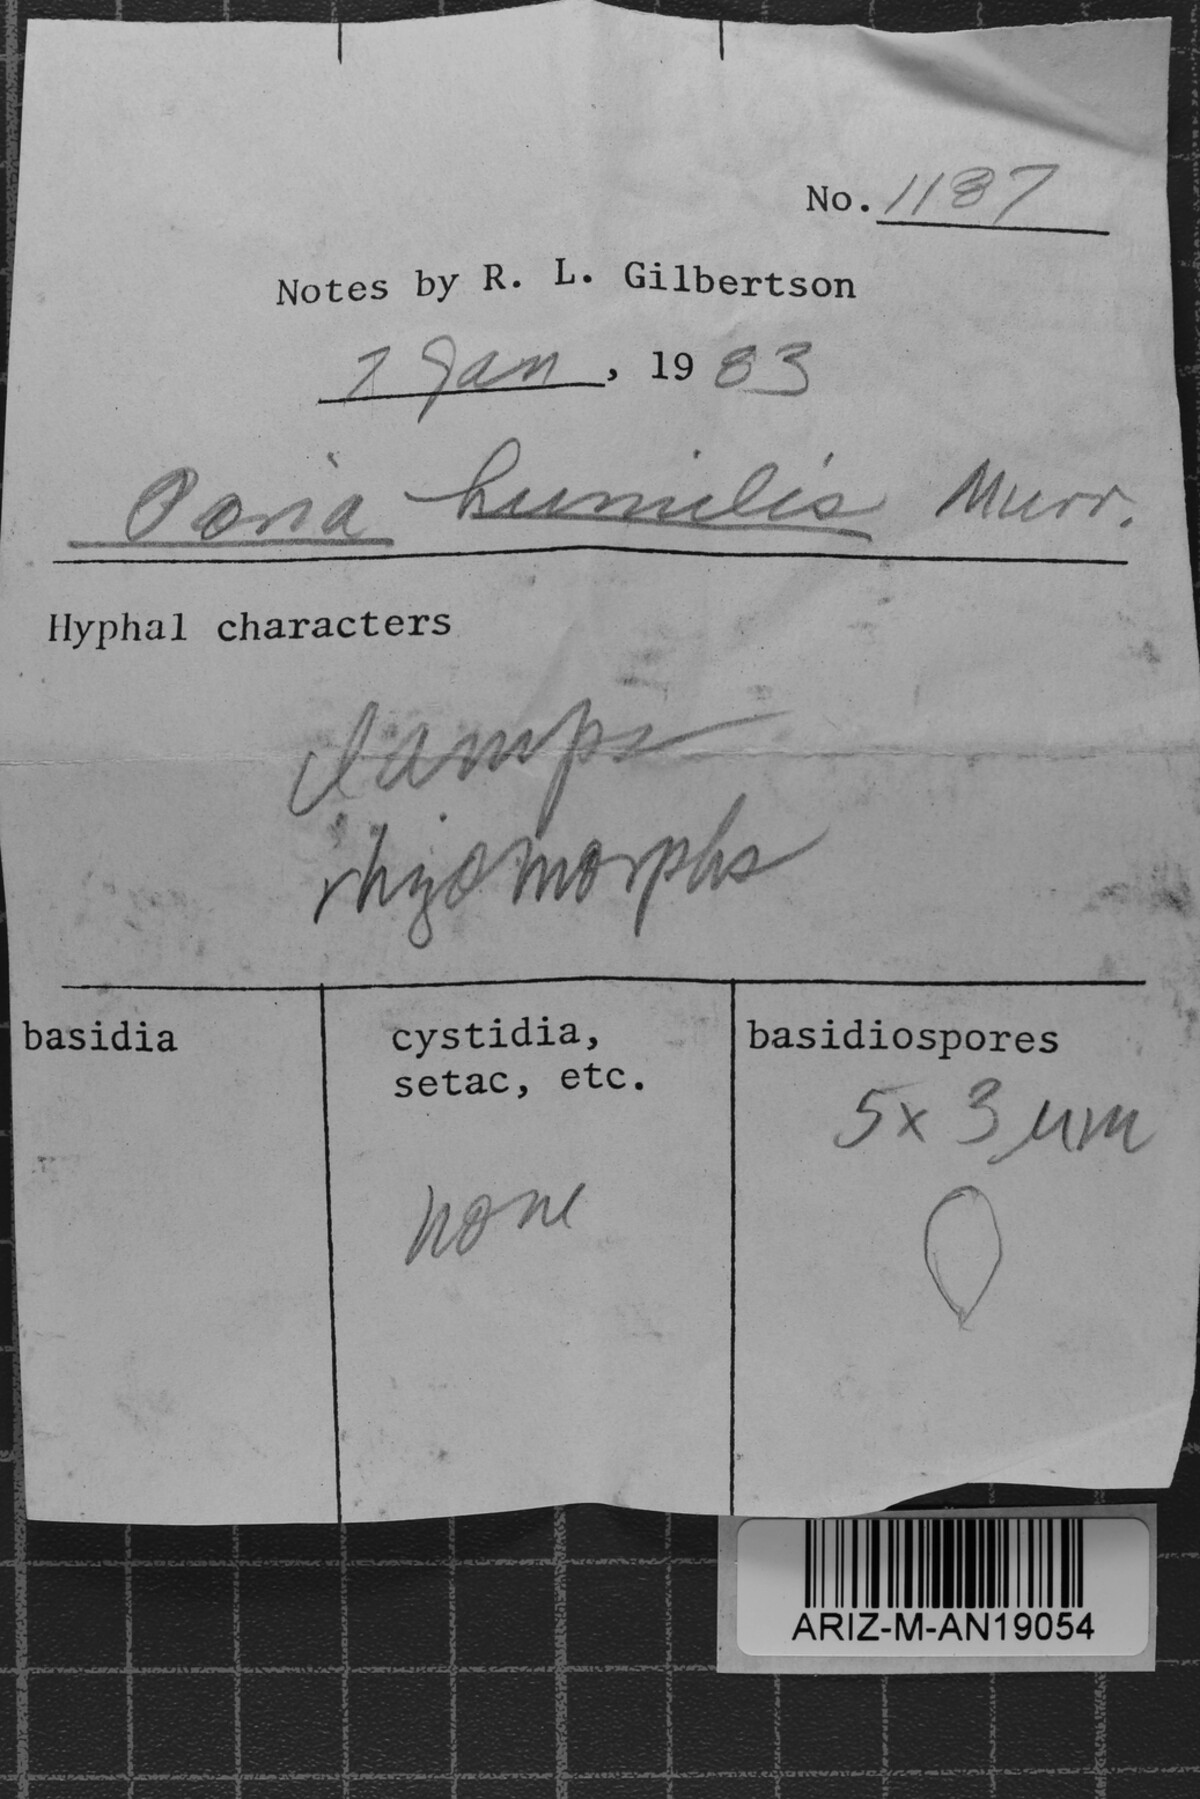 No. 1187
Notes by R. L. Gilbertson
7 Jan, 1983
Poria humilis Murr.
Hyphal characters
clamps
rhizomorphs
basidia
cystidia,
setac, etc.
none
basidiospores
5x3 µm
ARIZ-M-AN19054